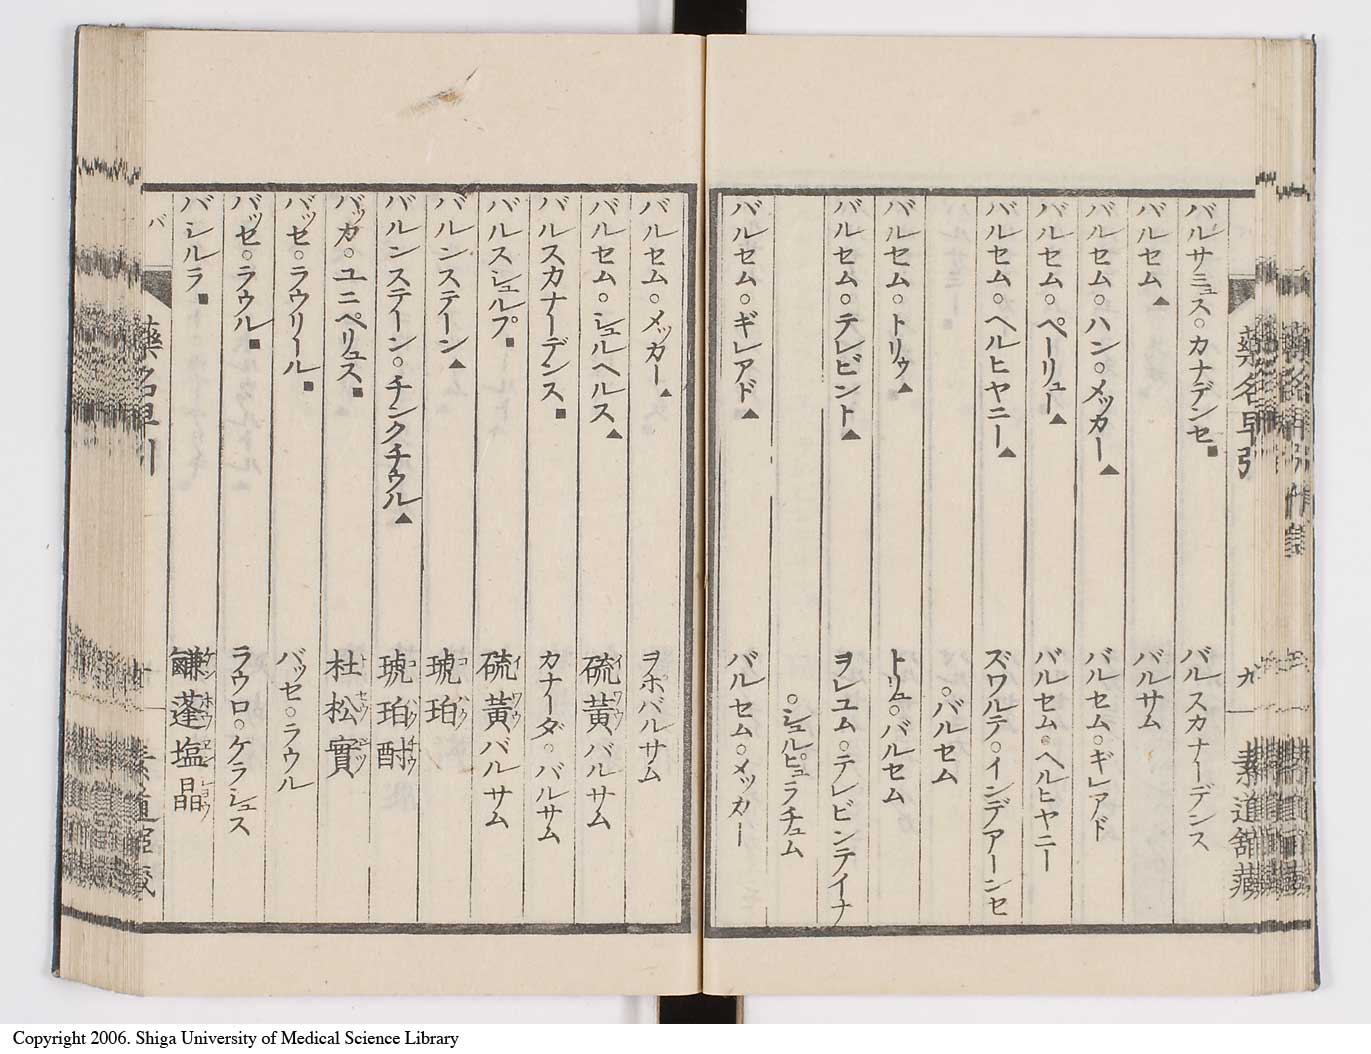 藥名早引
九
素道舘藏
バルサミュス○カナデンセ■ バルスカナーデンス
バルセム▲ バルサム
バルセム○ハン○メッカー▲ バルセム○ギレアド
バルセム○ペーリュー▲ バルセム○ヘルヒヤニー
バルセム○ヘルヒヤニー▲ ズワルテ○インデアーンセ
○バルセム
バルセム○トリゥ▲ トリュ○バルセム
バルセム○テレビント▲ ヲレユム○テレビンテイナ
○シュルピュラチュム
バルセム○ギレアド▲ バルセム○メッカー
バルセム○メッカー▲ ヲポバルサム
バルセム○シュルヘルス▲ 硫黄バルサム
バルスカナーデンス■ カナーダ○バルサム
バルスシュルプ■ 硫黄バルサム
バルンステーン▲ 琥珀
バルンステーン○チンクチゥル▲ 琥珀酎
バッカ○ユニペリュス■ 杜松實
バッセ○ラウリール■ バッセ○ラウル
バッゼ○ラウル■ ラウロ○ケラシュス
バシルラ■ 鹻蓬塩晶
バ
藥名早引
Copyright 2006. Shiga University of Medical Science Library